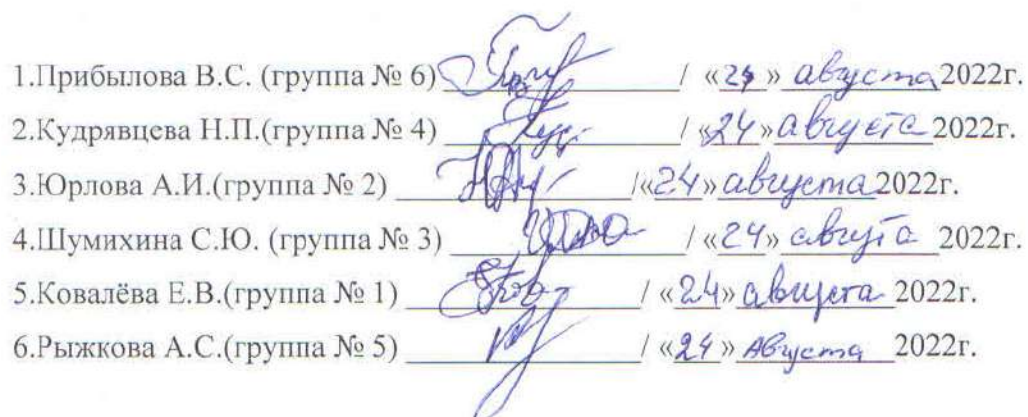 1.Прибылова В.С. (группа № 6) / «24» августа 2022г.
2.Кудрявцева Н.П.(группа № 4) / «24» августа 2022г.
3.Юрлова А.И.(группа № 2) /«24» августа 2022г.
4.Шумихина С.Ю. (группа № 3) / «24» августа 2022г.
5.Ковалёва Е.В.(группа № 1) / «24» августа 2022г.
6.Рыжкова А.С.(группа № 5) / «24» августа 2022г.